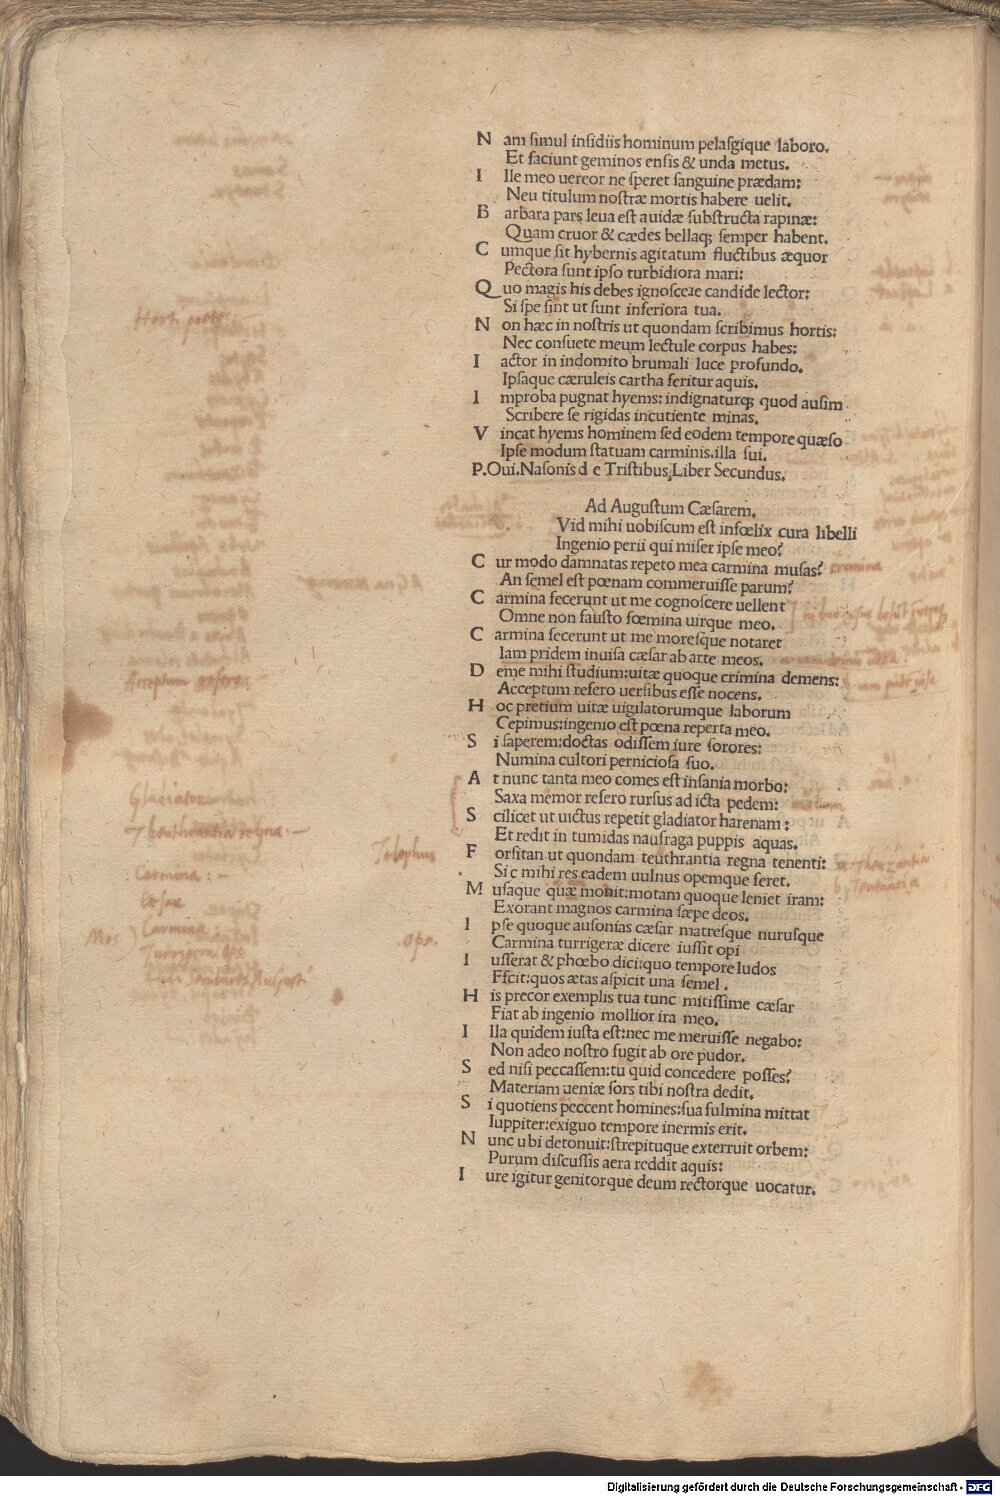 N am simul insidiis hominum pelasgique laboro.
Et faciunt geminos ensis & unda metus.
I lle meo uereor ne speret sanguine prædam:
Neu titulum nostræ mortis habere uelit.
B arbara pars leua est auidæ substructa rapinæ:
Quam cruor & cædes bellaq; semper habent.
C umque sit hybernis agitatum fluctibus æquor
Pectora sunt ipso turbidiora mari:
Q uo magis his debes ignoscere candide lector:
Si spe sint ut sunt inferiora tua.
Horti poete
N on hæc in nostris ut quondam scribimus hortis:
Nec consuete meum lectule corpus habes:
I actor in indomito brumali luce profundo.
Ipsaque cæruleis cartha feritur aquis.
I mproba pugnat hyems: indignaturq; quod ausim
Scribere se rigidas incutiente minas.
V incat hyems hominem sed eodem tempore quæso
Ipse modum statuam carminis.illa sui.
P.Oui.Nasonis d e Tristibus,Liber Secundus.
Ad Augustum Cæsarem.
Vid mihi uobiscum est infœlix cura libelli
Ingenio perii qui miser ipse meo?
C ur modo damnatas repeto mea carmina musas? carmina
An semel est pœnam commeruisse parum?
C armina fecerunt ut me cognoscere uellent
Omne non fausto fœmina uirque meo.
C armina fecerunt ut me moresque notaret
Iam pridem inuisa cæsar ab arte meos.
Acceptum refero
D eme mihi studium:uitæ quoque crimina demens:
Acceptum refero uersibus esse nocens.
H oc pretium uitæ uigilatorumque laborum
Cepimus:ingenio est pœna reperta meo.
S i saperem:doctas odissem iure sorores:
Numina cultori perniciosa suo.
A t nunc tanta meo comes est insania morbo:
Saxa memor refero rursus ad icta pedem:
Gladiator
S cilicet ut uictus repetit gladiator harenam:
Et redit in tumidas naufraga puppis aquas.
Teuthrantia regna. Telephus
F orsitan ut quondam teuthrantia regna tenenti:
Si c mihi res eadem uulnus opemque feret.
Carmina:
M usaque quæ mouit:motam quoque leniet iram:
Exorant magnos carmina sæpe deos.
Cæsar
I pse quoque ausonias cæsar matresque nurusque
Carmina turrigeræ dicere iussit opi
Mos Carmina
Turrigera Ops Ops.
I usserat & phœbo dici:quo tempore ludos
Ffcit:quos ætas aspicit una semel.
H is precor exemplis tua tunc mitissime cæsar
Fiat ab ingenio mollior ira meo.
I lla quidem iusta est:nec me meruisse negabo:
Non adeo nostro fugit ab ore pudor.
S ed nisi peccassem:tu quid concedere posses?
Materiam ueniæ sors tibi nostra dedit.
S i quotiens peccent homines:sua fulmina mittat
Iuppiter:exiguo tempore inermis erit.
N unc ubi detonuit:strepituque exterruit orbem:
Purum discussis aera reddit aquis:
I ure igitur genitorque deum rectorque uocatur.
Digitalisierung gefördert durch die Deutsche Forschungsgemeinschaft - DFG